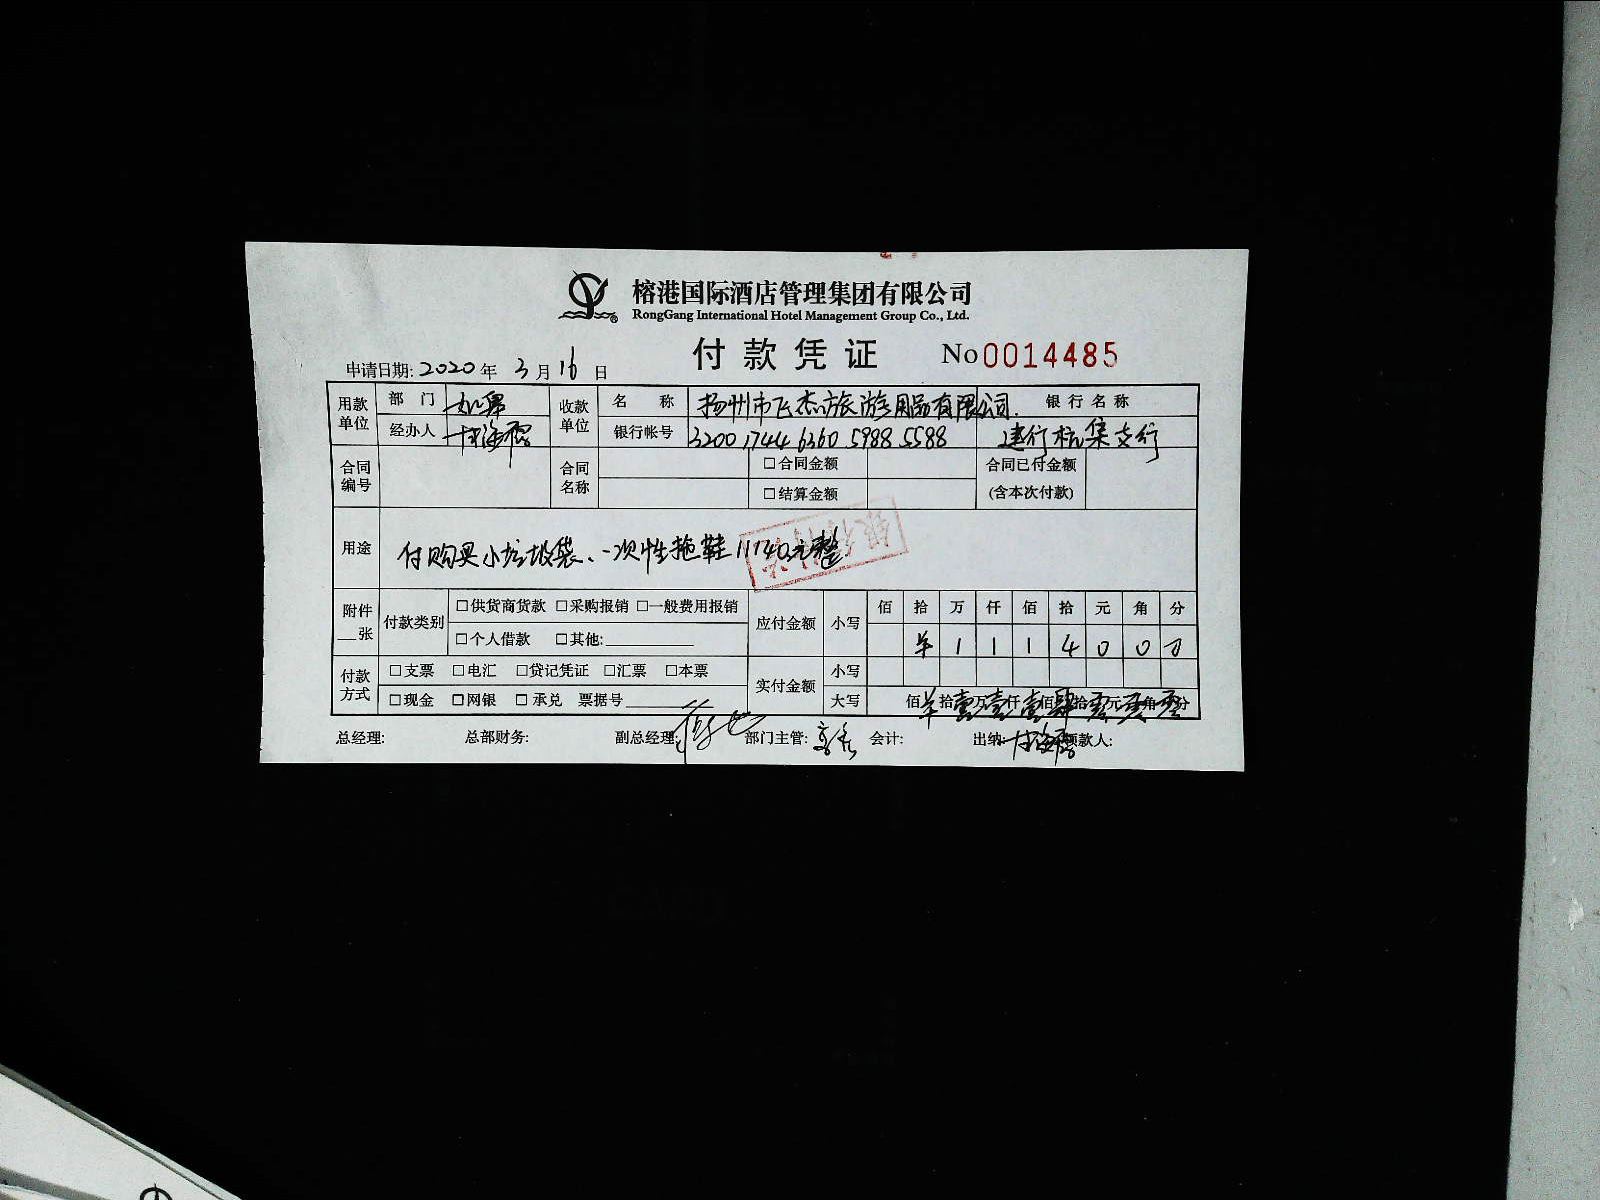 榕港国际酒店管理集团有限公司
RongGang International Hotel Management Group Co., Ltd.
付款凭证 No 0014485
申请日期: 2020 年 3 月 16 日
用款单位 部门 收款单位 名称 扬州市飞杰旅游用品有限公司. 银行名称
经办人 银行帐号 3200 1744 6360 5988 5588 建行杭集支行
合同编号 合同名称 □合同金额 合同已付金额
□结算金额 (含本次付款)
用途 付购买小垃圾袋、一次性拖鞋11140元整
附件__张 付款类别 □供货商货款 □采购报销 □一般费用报销 应付金额 小写 佰 拾 万 仟 佰 拾 元 角 分
□个人借款 □其他:________ ¥ 1 1 1 4 0 0 0
付款方式 □支票 □电汇 □贷记凭证 □汇票 □本票 实付金额 小写
□现金 □网银 □承兑 票据号________ 大写 佰 拾壹万壹仟壹佰肆拾零元零角零分
总经理: 总部财务: 副总经理: 部门主管: 会计: 出纳: 领款人: